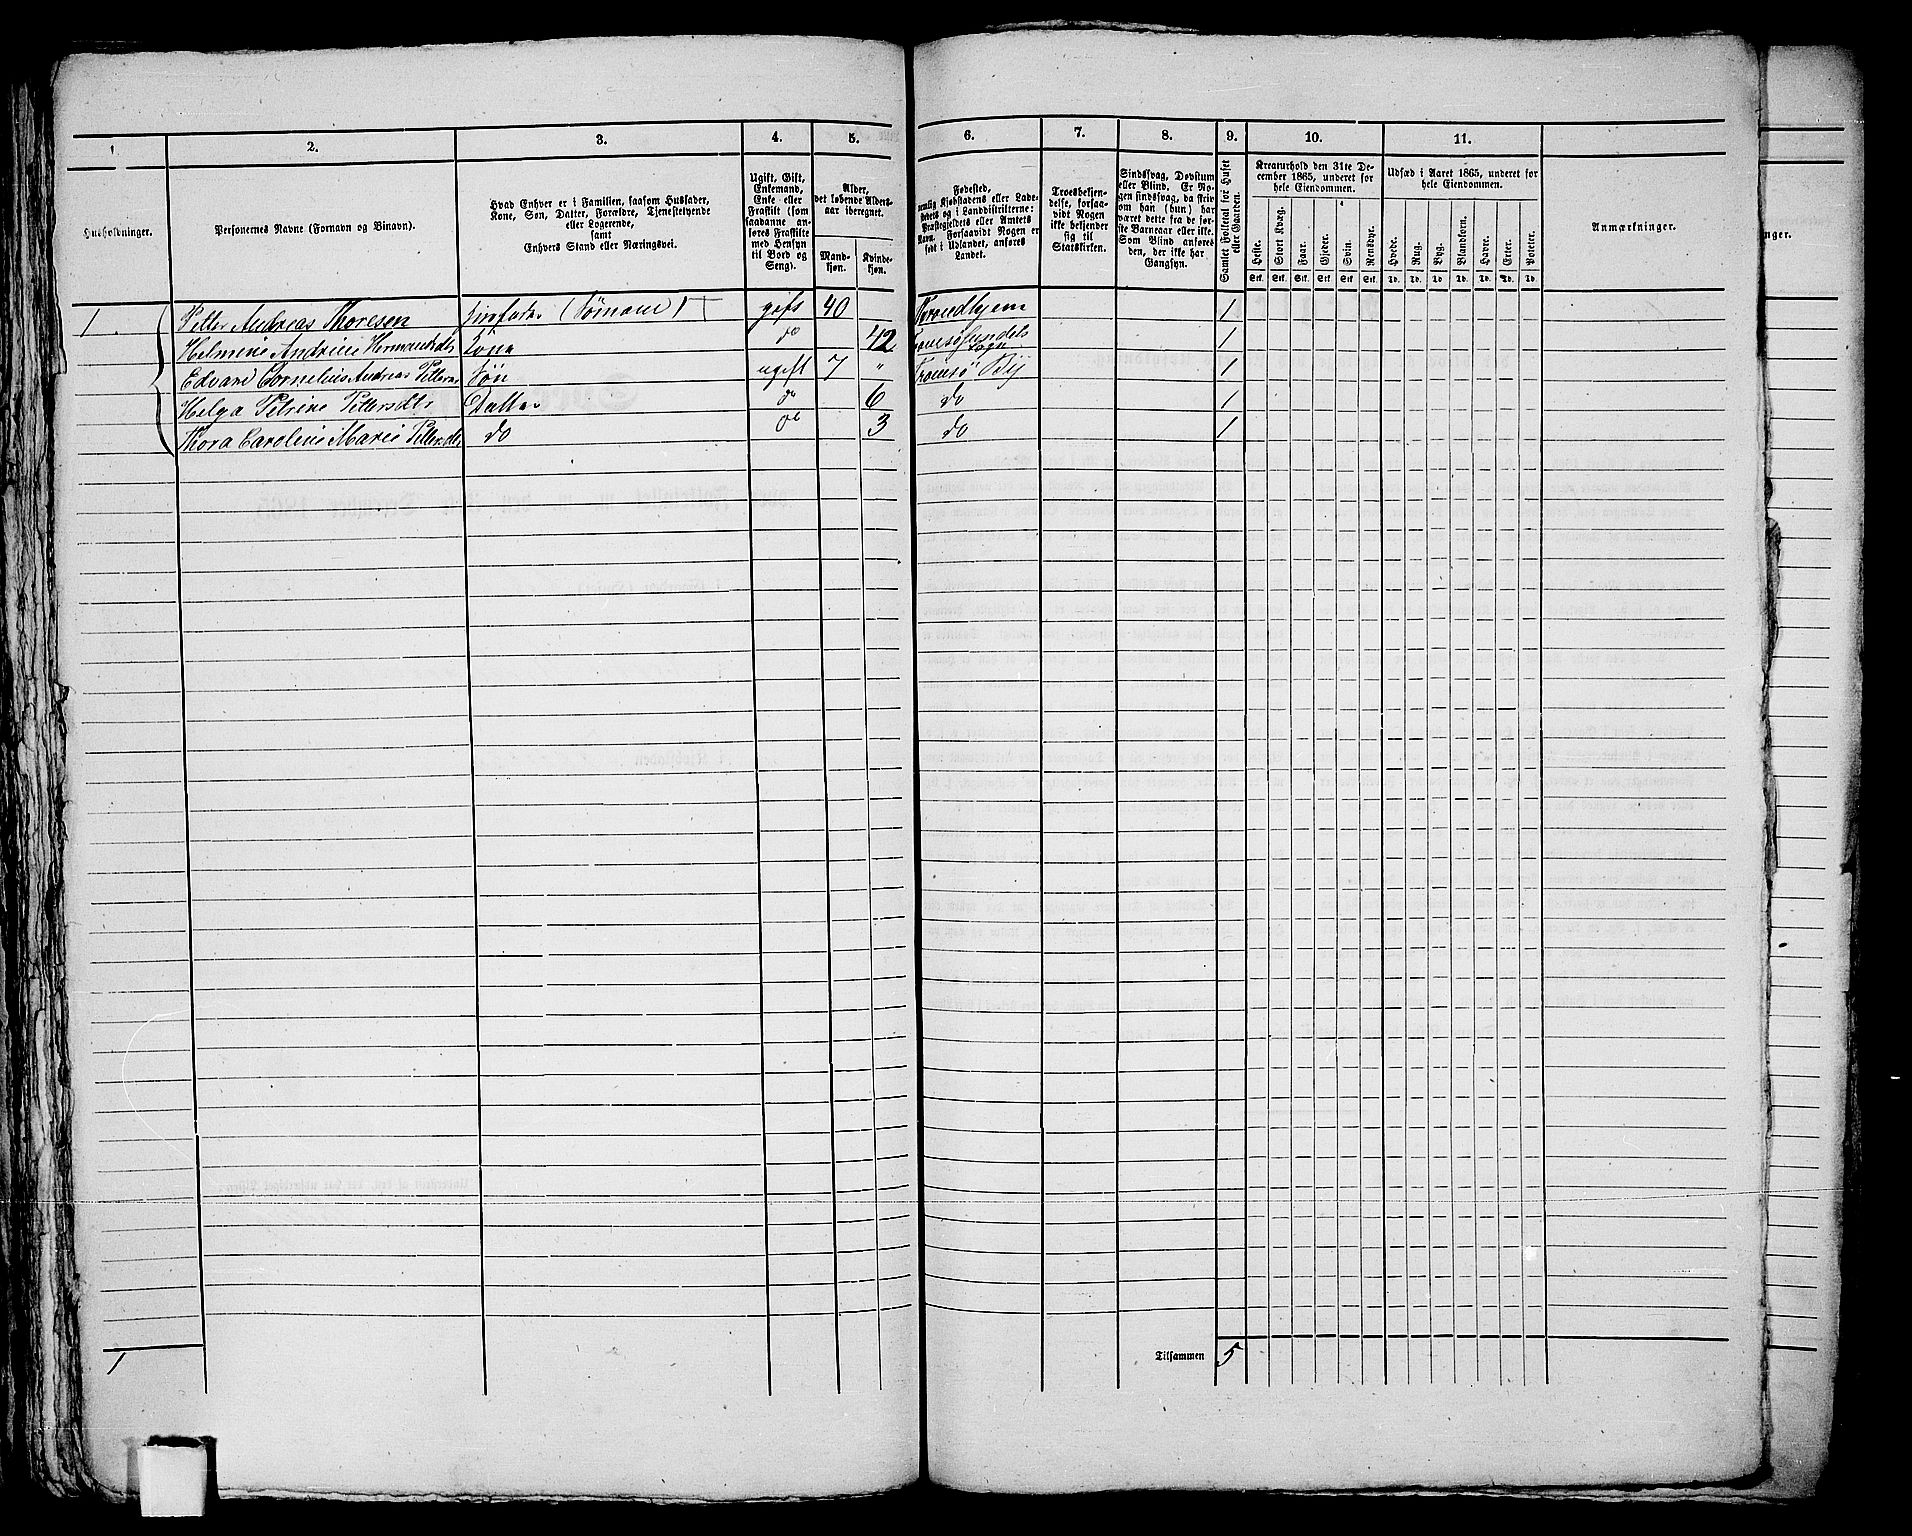 1
2.
3.
4.
5.
6.
7.
8.
9.
10.
11.
Husholdninger.
Personernes Navne (Fornavn og Binavn).
Hvad Enhver er i Familien, saasom Husfader,
Kone, Søn, Datter, Forældre, Tjenestetyende
eller Logerende,
samt
Enhvers Stand eller Næringsvei.
Ugift, Gift,
Enkemand,
Enke eller
Fraskilt (som
saadanne an-
føres Fraskilte
med Hensyn
til Bord og
Seng).
Alder,
det løbende Alders-
aar iberegnet.
Mand-
kjøn.
Kvinde-
kjøn.
Fødested,
nemlig Kjøbstadens eller Lade-
stedets og i Landdistrikterne:
Præstegjeldets eller Amtets
Navn. Forsaavidt Nogen er
født i Udlandet, anføres
Landet.
Troesbekjen-
delse, forsaa-
vidt Nogen
ikke bekjender
sig til
Statskirken.
Sindssvag, Døvstum
eller Blind. Er No-
gen sindssvag, da skriv
om han (hun) har
været dette fra de før-
ste Barneaar eller ikke.
Som Blind anføres
den, der ikke har
Gangsyn.
Samlet Folketal for Huset
eller Gaarden.
Kreaturhold den 31te De-
cember 1865, underet for
hele Eiendommen.
Heste.
Stort Kvæg.
Faar.
Gjeder.
Svin.
Rensdyr.
Stk. Stk. Stk. Stk. Stk. Stk.
Udsæd i Aaret 1865, underet for
hele Eiendommen.
Hvede.
Rug.
Byg.
Blandkorn.
Havre.
Erter.
Poteter.
Td. Td. Td. Td. Td. Td. Td.
Anmærkninger.
1 Petter Andreas Thoresen Husfader (Sømand) gift 40 Trondhjem 1
Helmine Andrine Hermansdtr Kone do 42 Tromsøsundets Sogn 1
Edvard Cornelius Andreas Petters Søn ugift 7 " Tromsø By 1
Helga Petrine Pettersdtr Datter do 6 do 1
Thora Caroline Marie Pettersdtr do do 3 do 1
1 Tilsammen 5